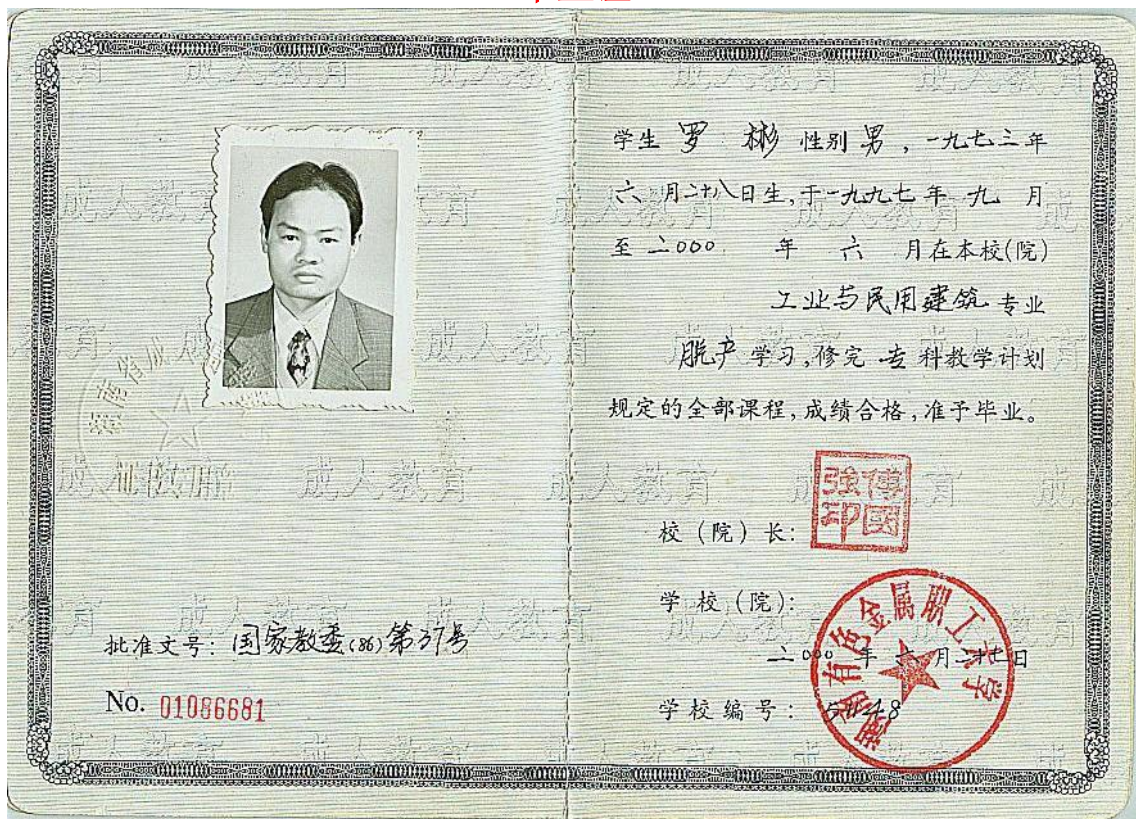 批准文号：国家教委(86)第37号
No. 01086681
学生 罗 彬 性别 男，一九七三年
六 月二十八日生，于一九九七年 九 月
至 二000 年 六 月在本校(院)
工业与民用建筑 专业
脱产 学习，修完 专 科教学计划
规定的全部课程，成绩合格，准予毕业。
校（院）长：
傅國強印
学 校（院）：
湖南有色金属职工大学
二000 年 六 月二十七日
学校编号：
成人教育